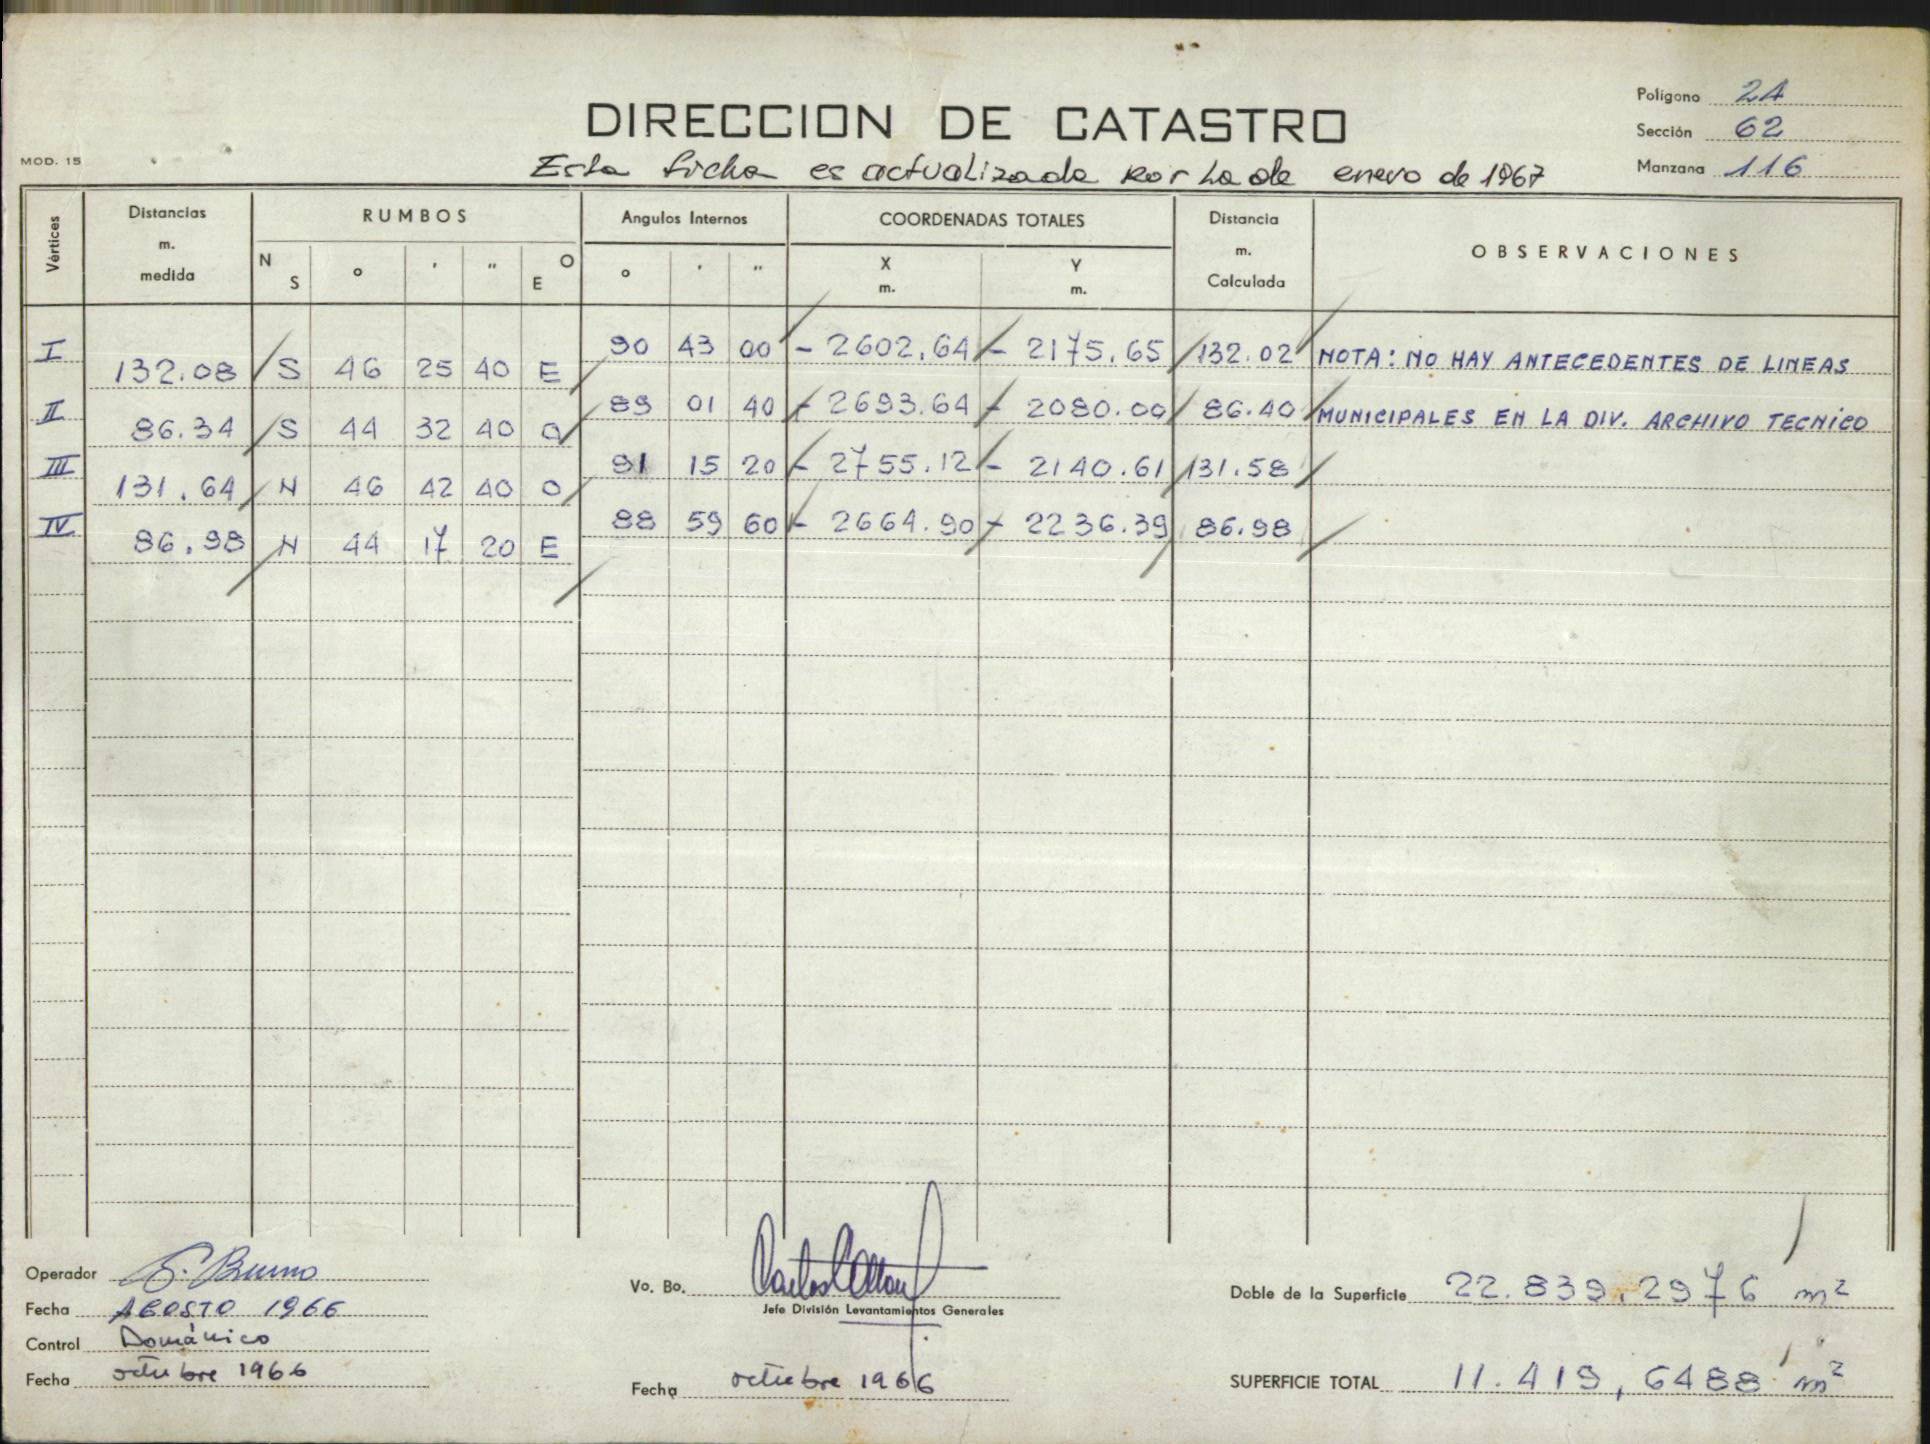 Polígono 24
DIRECCION DE CATASTRO
Sección 62
MOD. 15
Esta ficha es actualizada por la de enero de 1967
Manzana 116
Vértices Distancias m. medida RUMBOS N S o ' " O E Angulos Internos o ' " COORDENADAS TOTALES X m. Y m. Distancia m. Calculada OBSERVACIONES
I 90 43 00 - 2602.64 - 2175.65 132.02 NOTA: NO HAY ANTECEDENTES DE LINEAS
132.08 S 46 25 40 E
II 89 01 40 - 2693.64 - 2080.00 86.40 MUNICIPALES EN LA DIV. ARCHIVO TECNICO
86.34 S 44 32 40 O
III 91 15 20 - 2755.12 - 2140.61 131.58
131.64 N 46 42 40 O
IV 88 59 60 - 2664.90 - 2236.39 86.98
86.98 N 44 17 20 E
Operador G. Bruno
Fecha AGOSTO 1966
Control Dománico
Fecha octubre 1966
Vo. Bo.
Jefe División Levantamientos Generales
Fecha octubre 1966
Doble de la Superficie 22.839,2976 m²
SUPERFICIE TOTAL 11.419,6488 m²